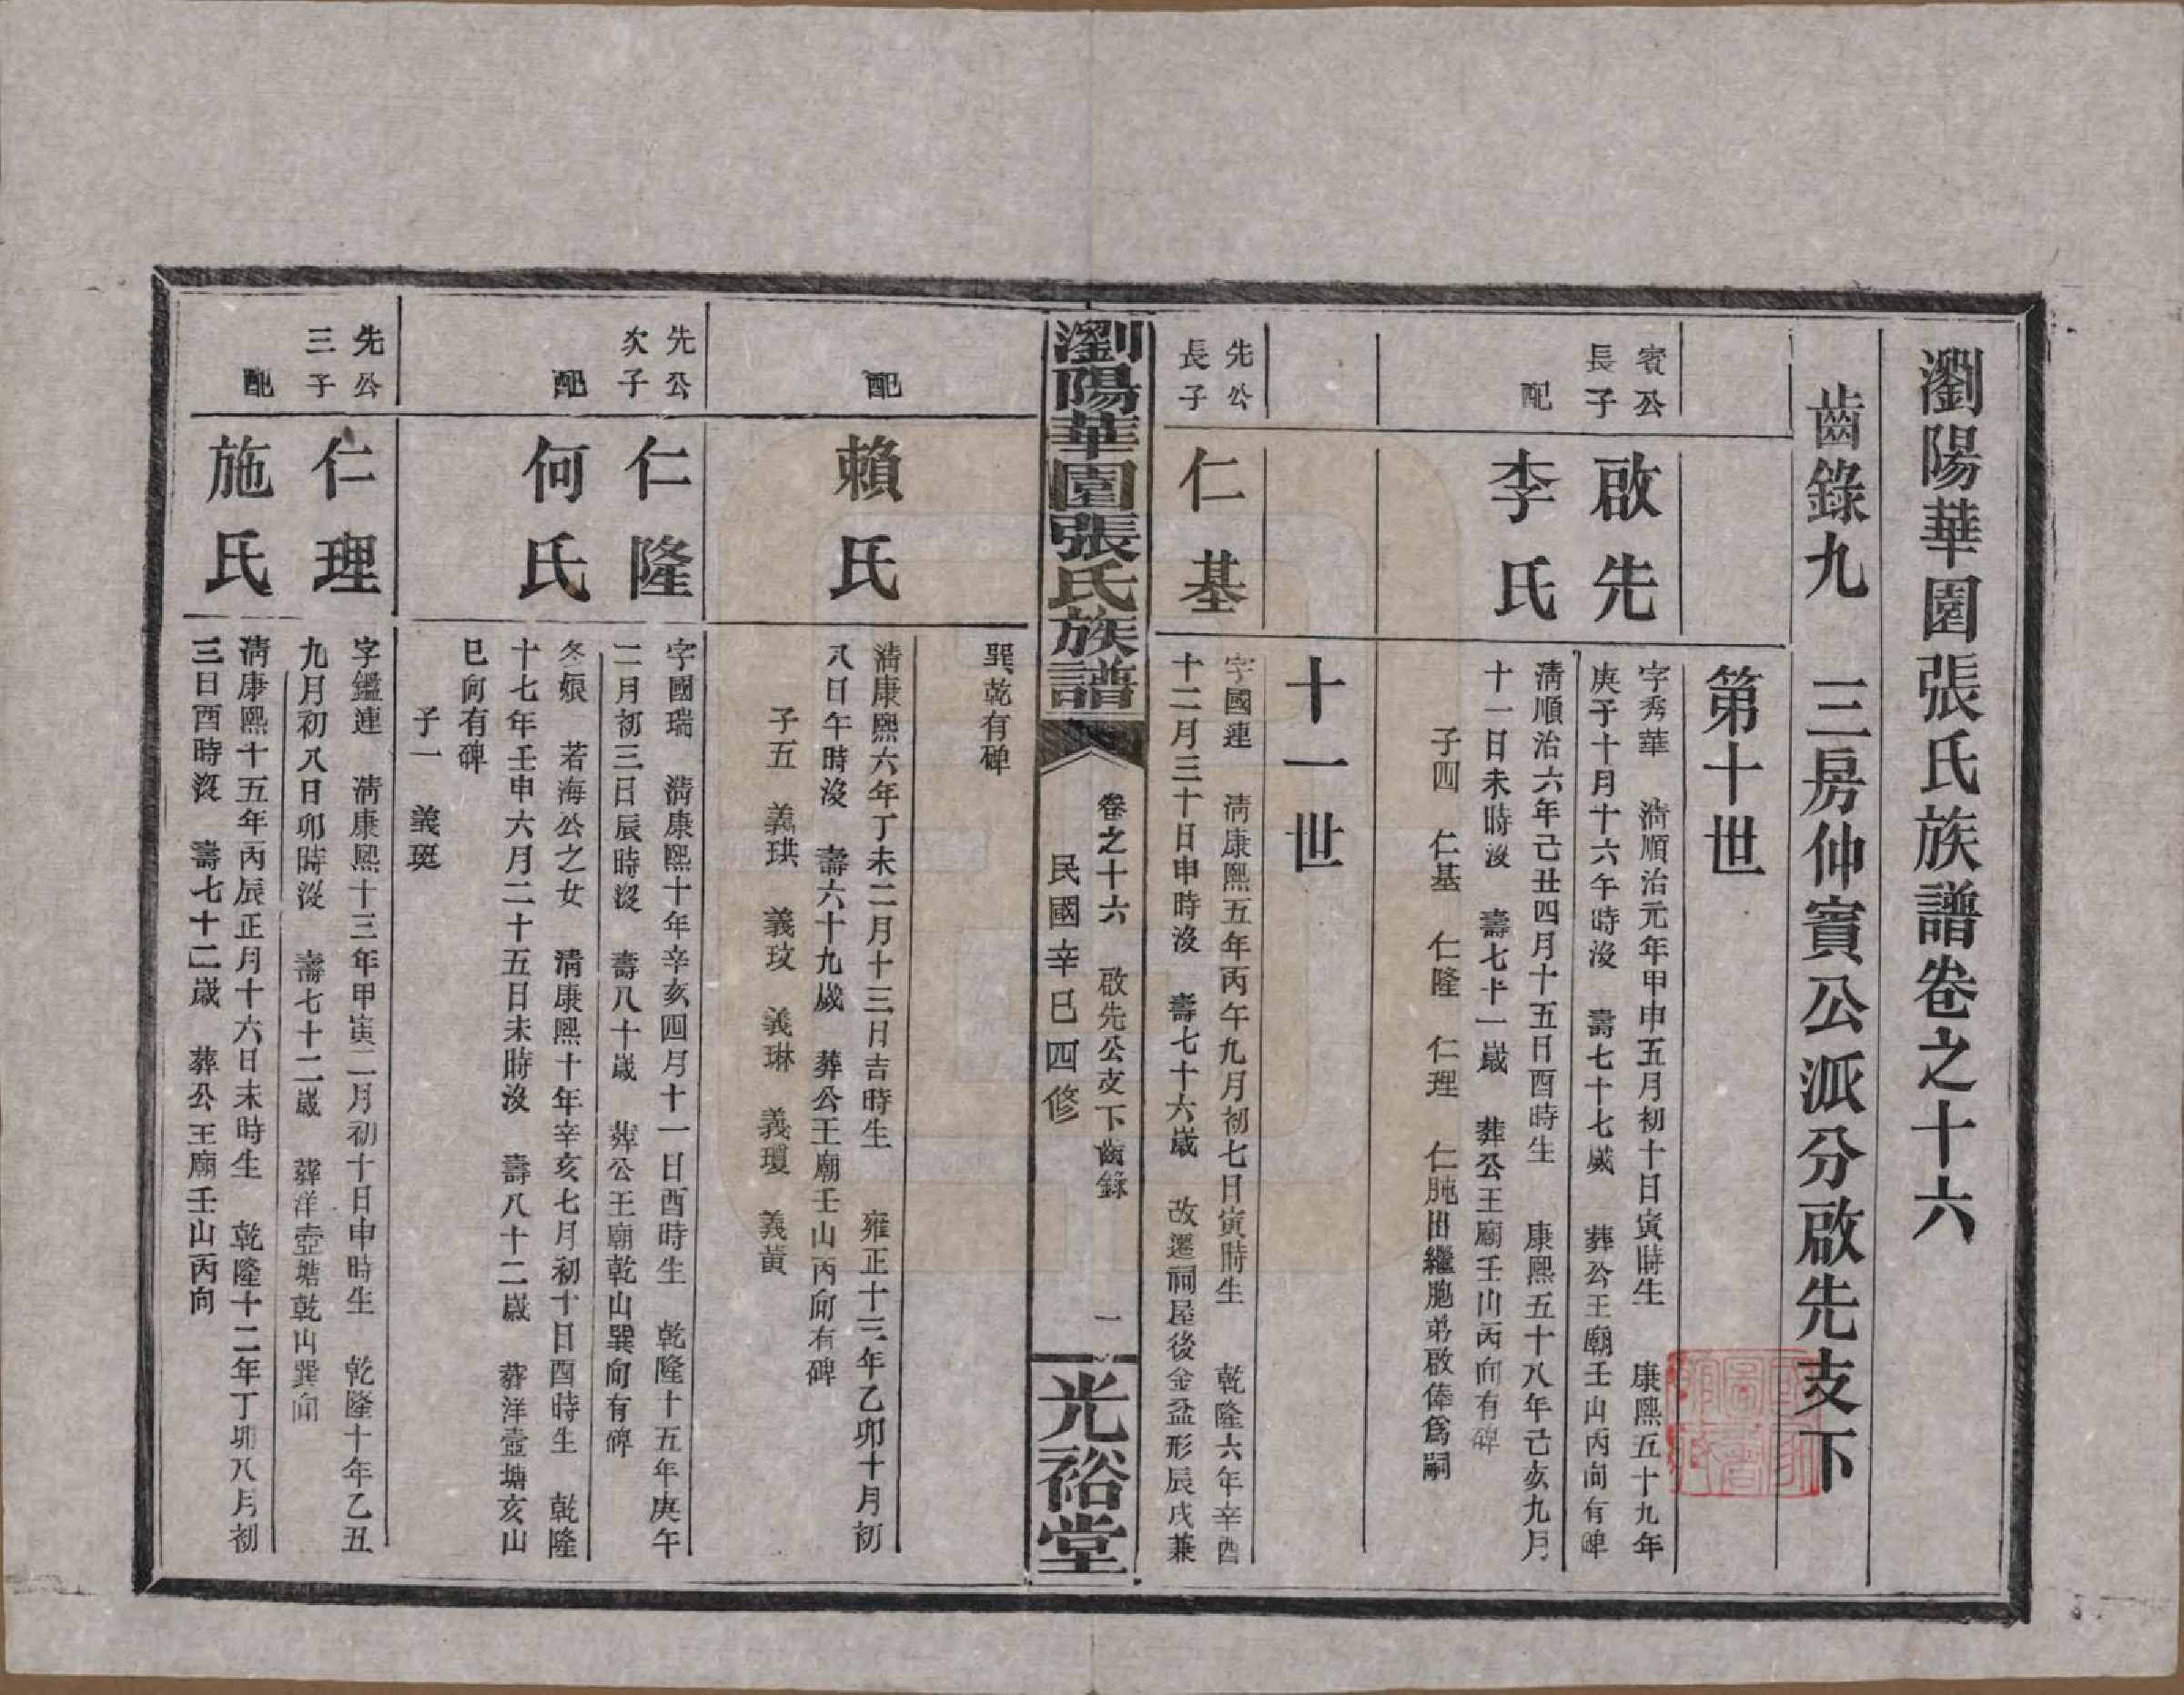 瀏陽華園張氏族譜卷之十六
齒錄九　三房仲賓公派分啟先支下
第十世
賓公
長子
啟先
字秀華　清順治元年甲申五月初十日寅時生　康熙五十九年
庚子十月十六午時沒　壽七十七歲　葬公王廟壬山丙向有碑
配
李氏
清順治六年己丑四月十五日酉時生　康熙五十八年己亥九月
十一日未時沒　壽七十一歲　葬公王廟壬山丙向有碑
子四　仁基　仁隆　仁理　仁肫出繼胞弟啟俸為嗣
十一世
先公
長子
仁基
字國連　清康熙五年丙午九月初七日寅時生　乾隆六年辛酉
十二月三十日申時沒　壽七十六歲　改遷祠屋後金盆形辰戌兼
瀏陽華園張氏族譜
卷之十六　啟先公支下齒錄　一
民國辛巳四修
光裕堂
巽乾有碑
配
賴氏
清康熙六年丁未二月十三日吉時生　雍正十三年乙卯十月初
八日午時沒　壽六十九歲　葬公王廟壬山丙向有碑
子五　義珙　義玟　義琳　義瓊　義黃
先公
次子
仁隆
字國瑞　清康熙十年辛亥四月十一日酉時生　乾隆十五年庚午
二月初三日辰時沒　壽八十歲　葬公王廟乾山巽向有碑
配
何氏
冬娘　若海公之女　清康熙十年辛亥七月初十日酉時生　乾隆
十七年壬申六月二十五日未時沒　壽八十二歲　葬洋壺塘亥山
巳向有碑
子一　義珽
先公
三子
仁理
字鑑連　清康熙十三年甲寅二月初十日申時生　乾隆十年乙丑
九月初八日卯時沒　壽七十二歲　葬洋壺塘乾山巽向
配
施氏
清康熙十五年丙辰正月十六日未時生　乾隆十二年丁卯八月初
三日酉時沒　壽七十二歲　葬公王廟壬山丙向